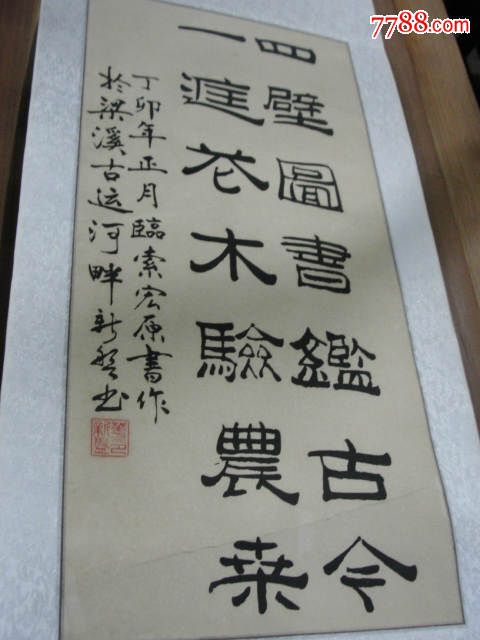 四壁圖書鑑古今
一庭花木驗農桒
丁卯年正月臨索宏原書作
於梁溪古运河畔新
7788.com